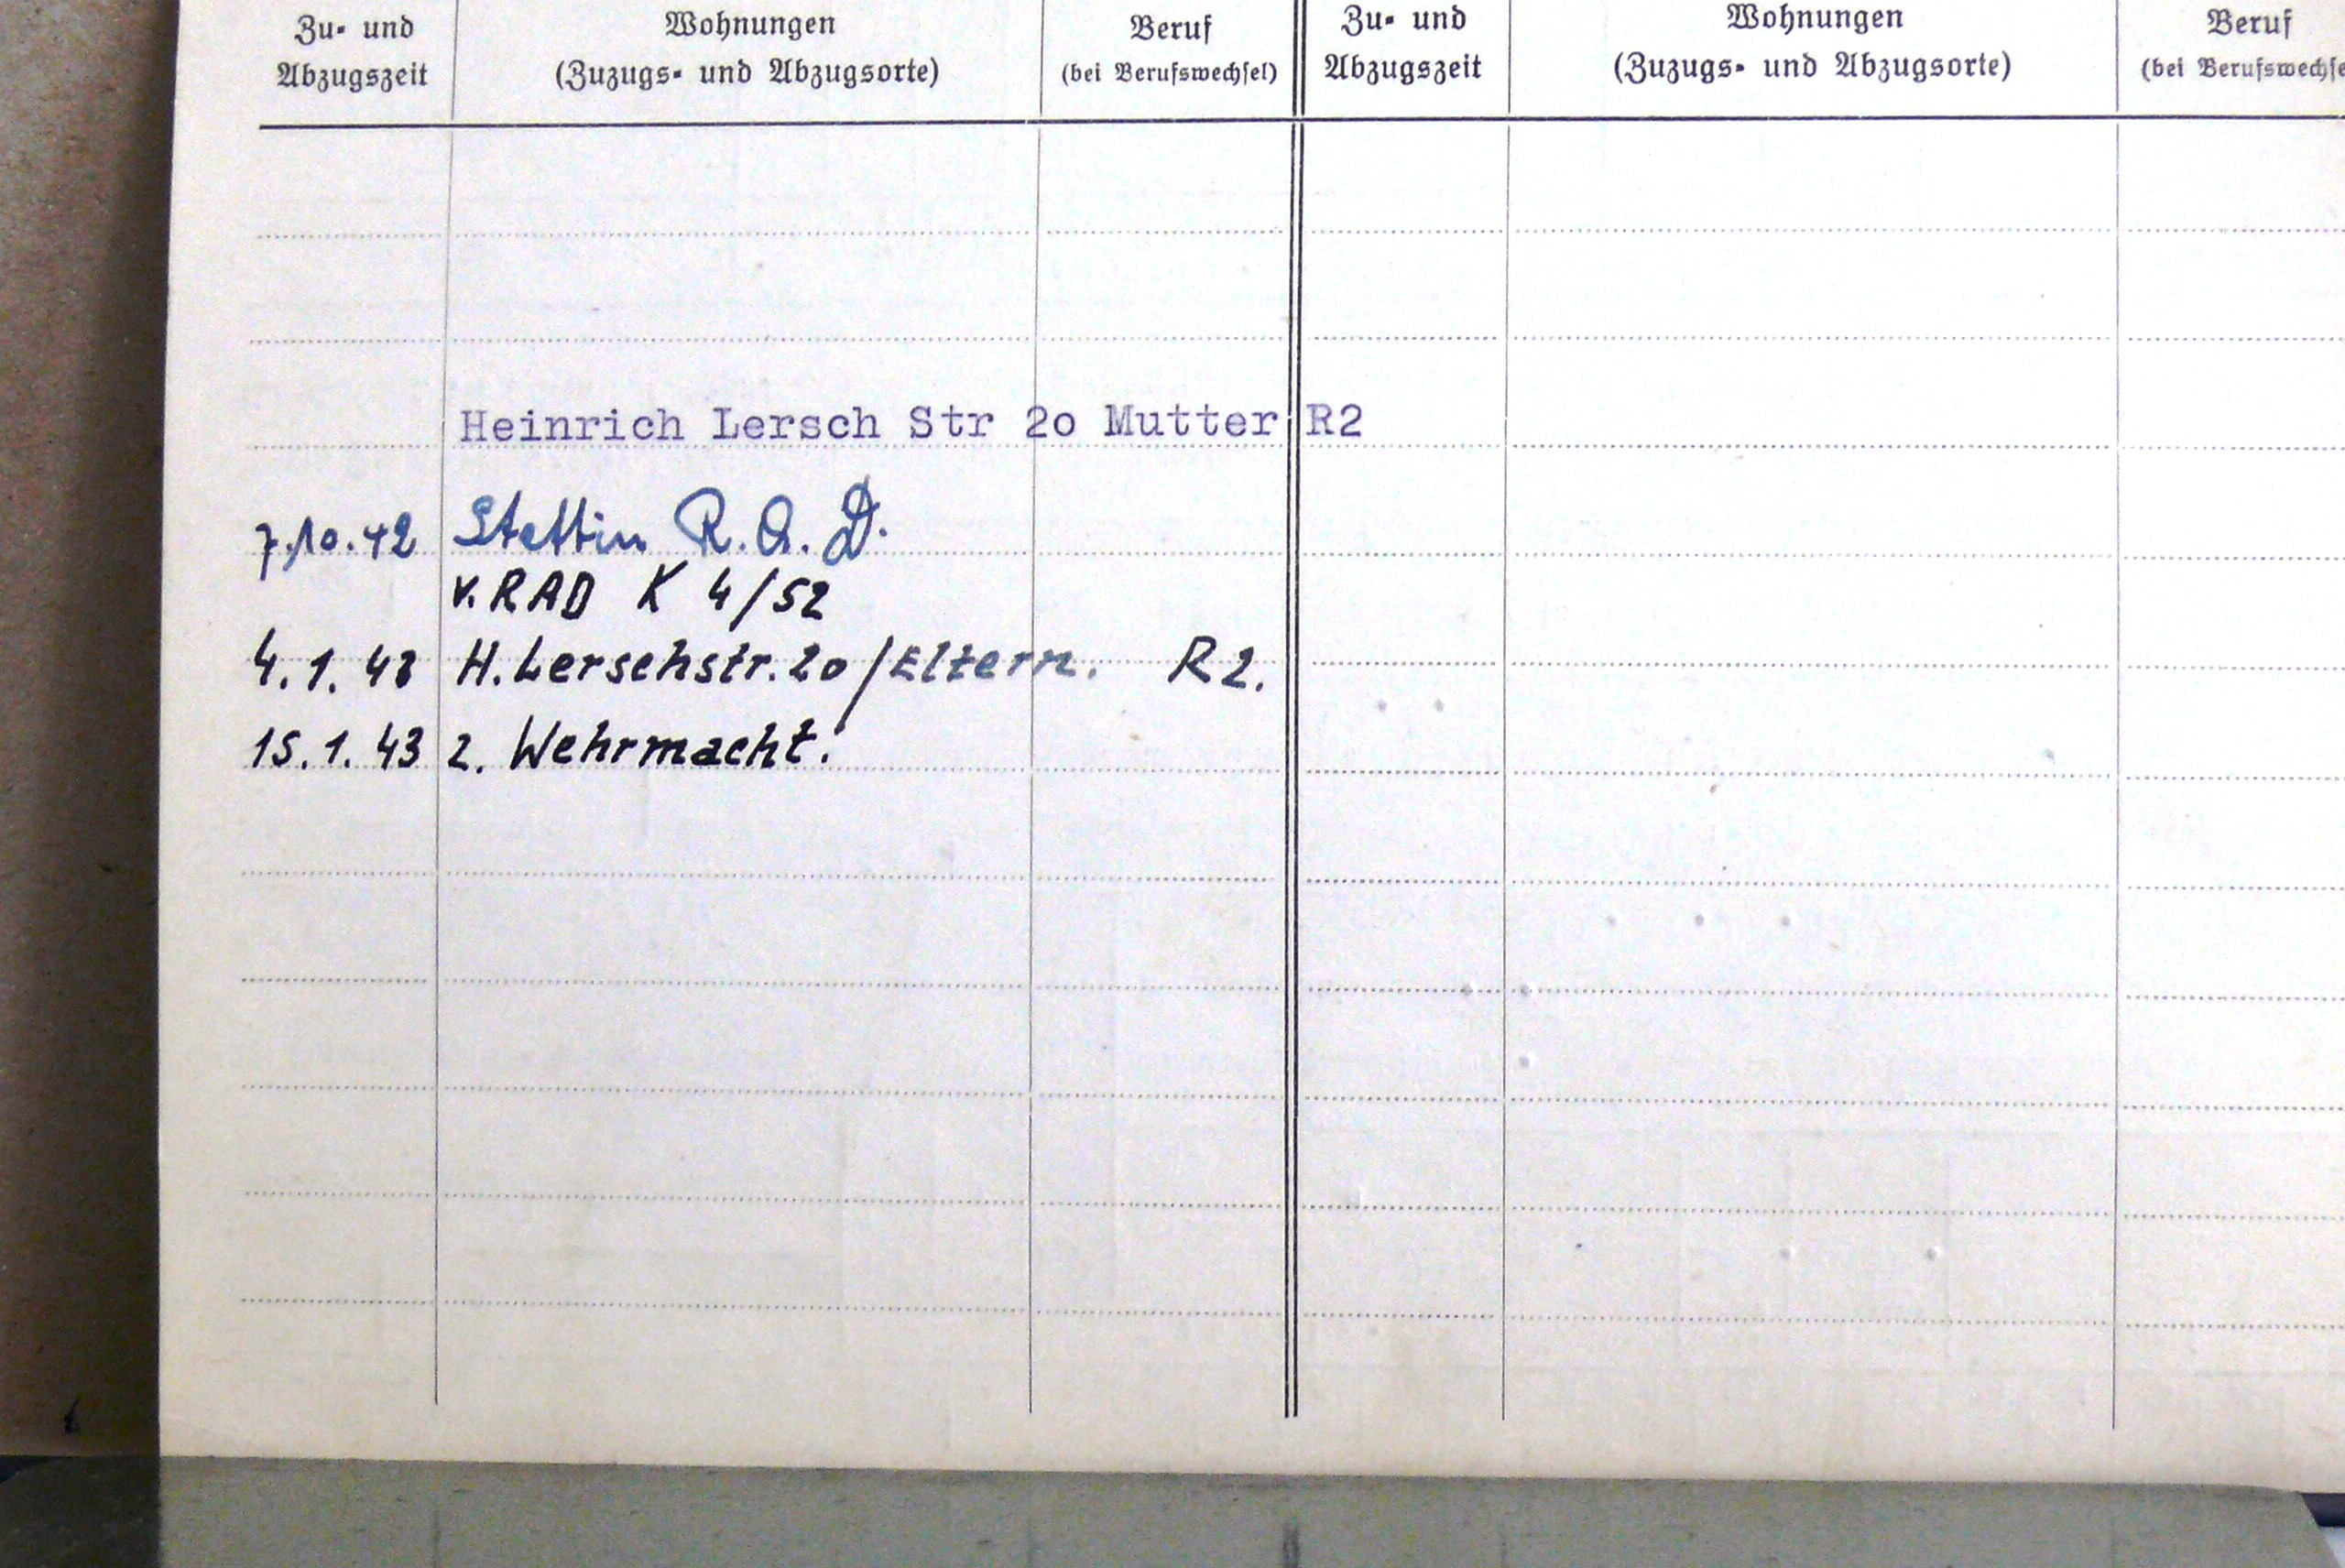 Zu- und Abzugszeit
Wohnungen (Zuzugs- und Abzugsorte)
Beruf (bei Berufswechsel)
Zu- und Abzugszeit
Wohnungen (Zuzugs- und Abzugsorte)
Beruf (bei Berufswechse
Heinrich Lersch Str 2o Mutter R2
7.10.42 Stettin R.A.D.
v. RAD K 4/52
4.1.43 H. Lerschstr. 20/Eltern. R2.
15.1.43 z. Wehrmacht.